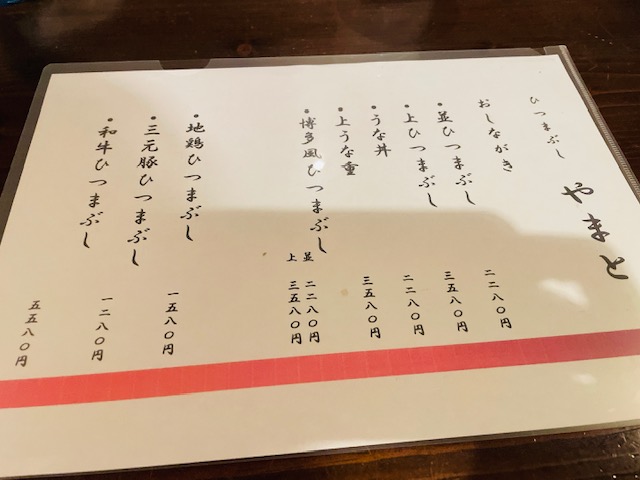 ひつまぶし
やまと
おしながき
・並ひつまぶし 二二八〇円
・上ひつまぶし 三五八〇円
・うな丼 二二八〇円
・上うな重 三五八〇円
・博多風ひつまぶし 並 二二八〇円
上 三五八〇円
・地鶏ひつまぶし 一五八〇円
・三元豚ひつまぶし 一二八〇円
・和牛ひつまぶし 五五八〇円